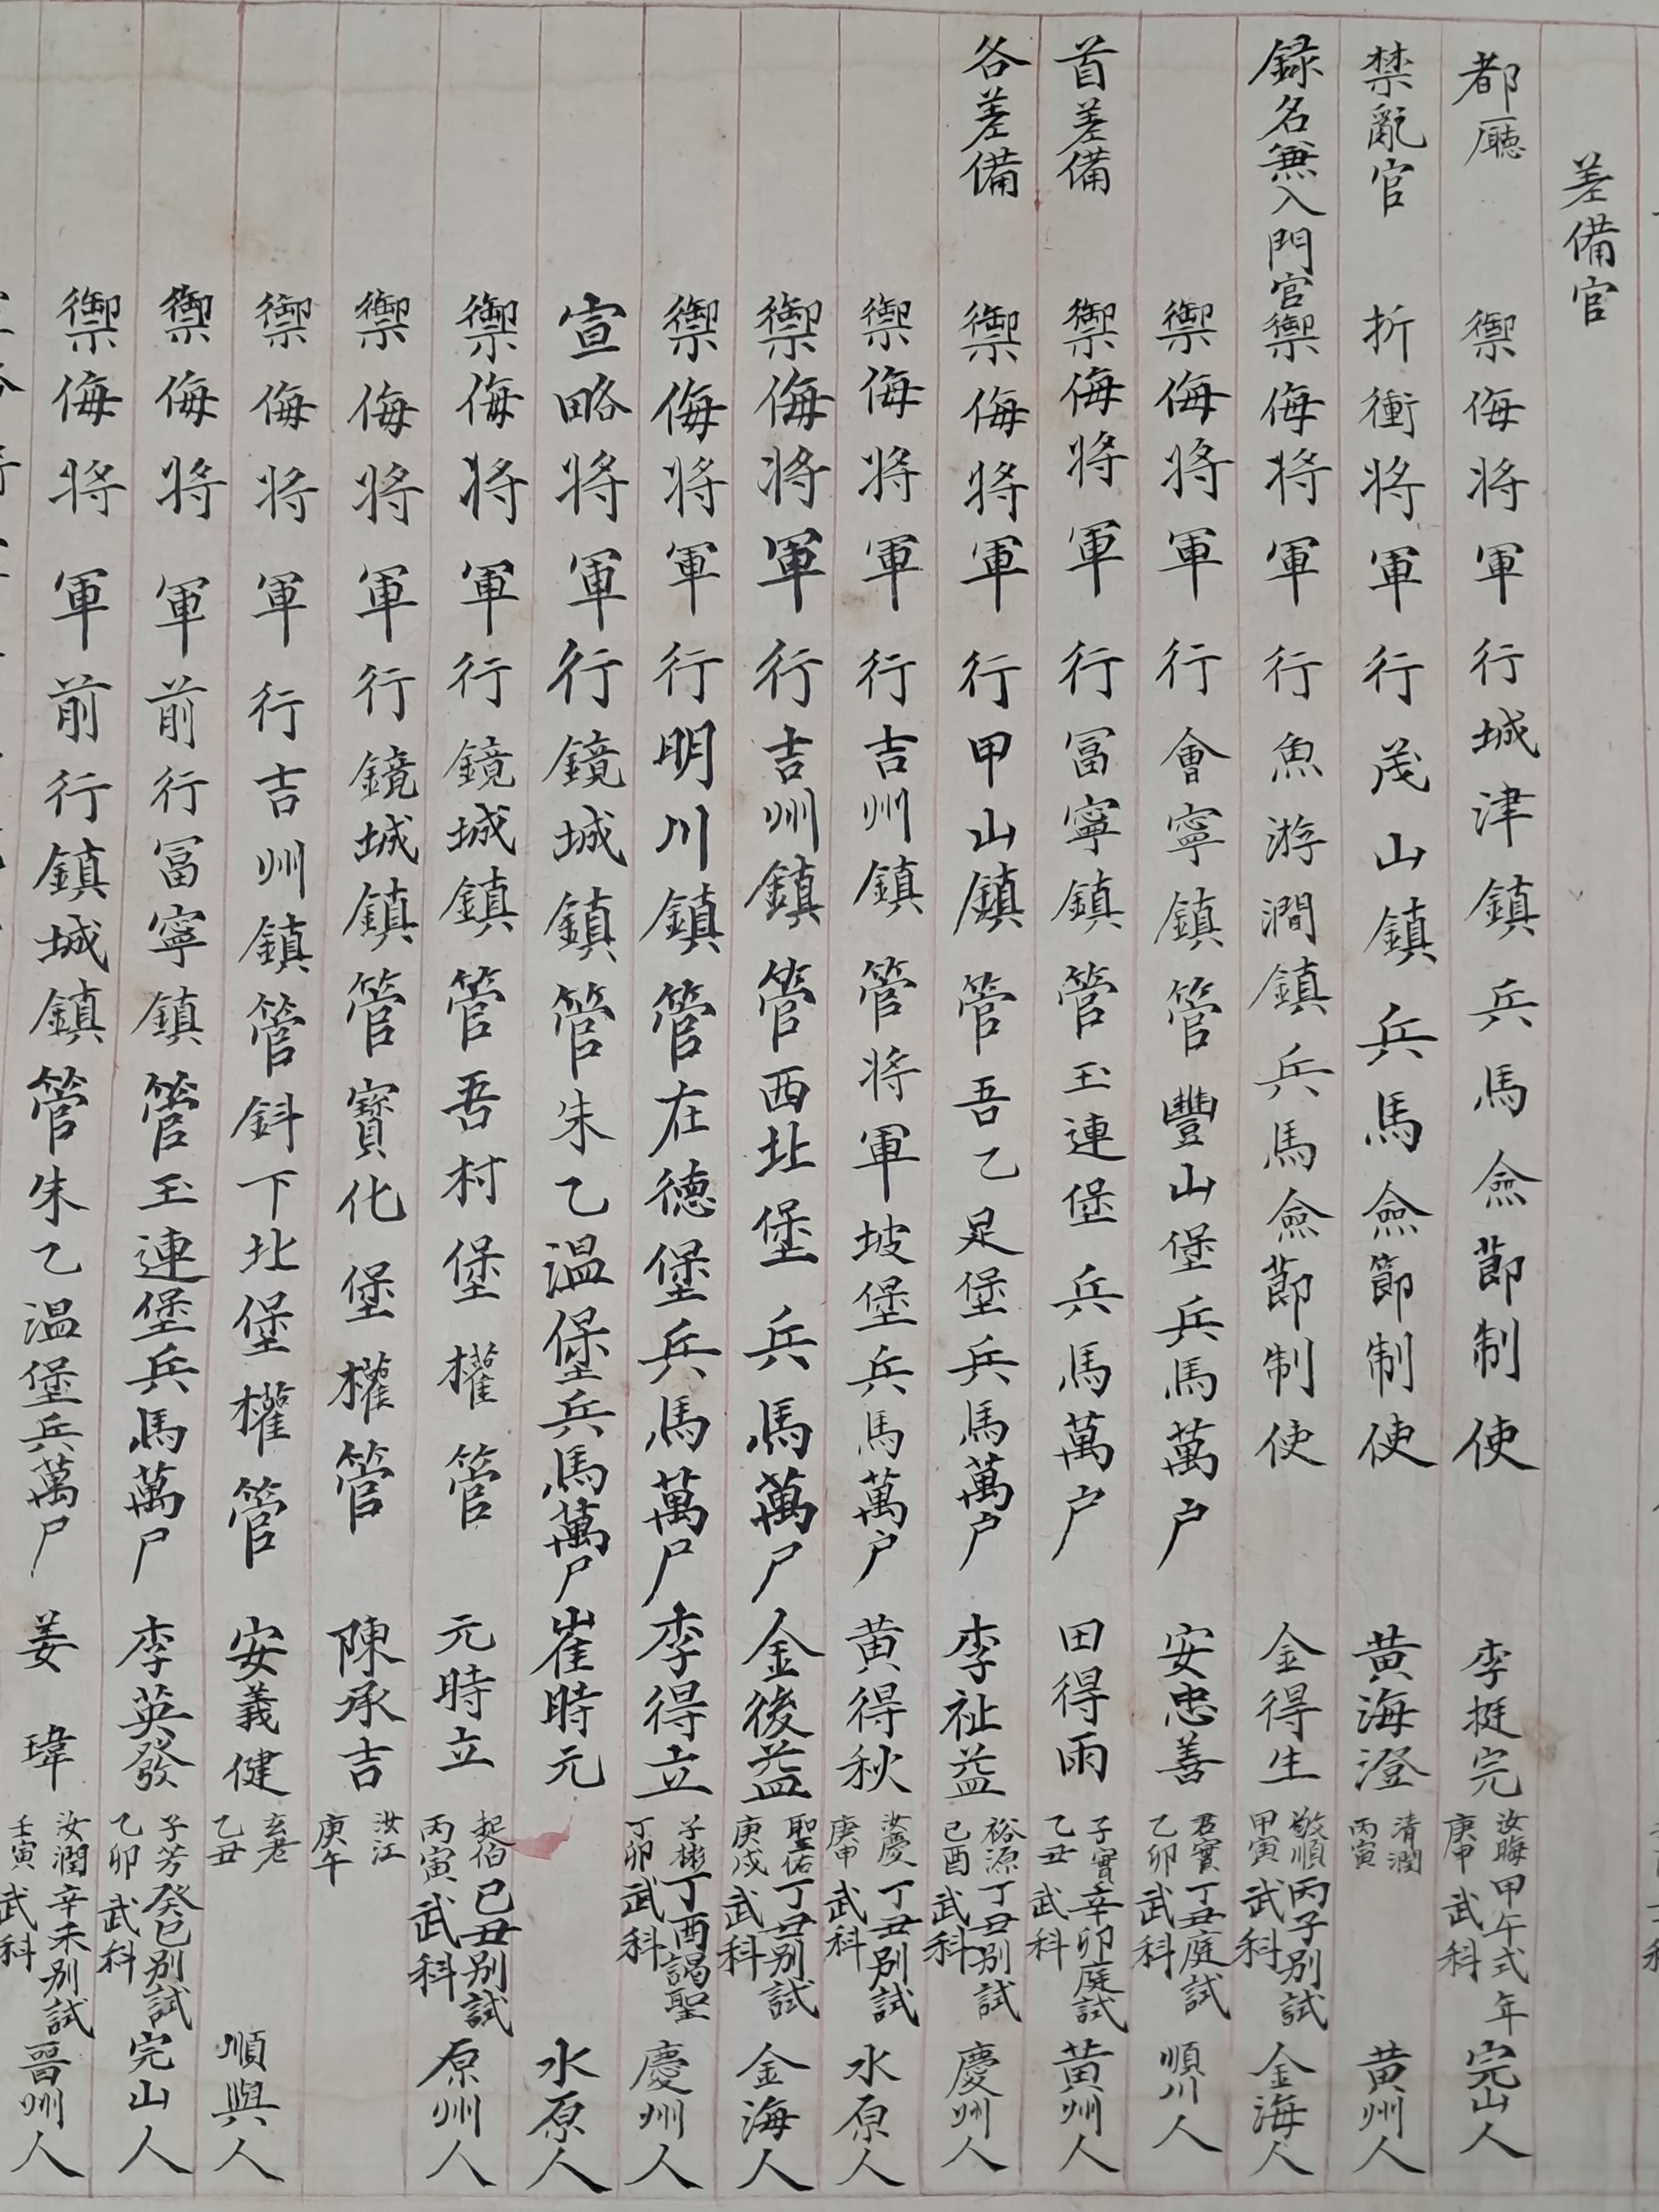 差備官
都廳 禦侮將軍行城津鎮兵馬僉節制使 李挺完 汝晦 庚申 甲午式年 武科 完山人
禁亂官 折衝將軍行茂山鎮兵馬僉節制使 黃海澄 清潤 丙寅 黃州人
録名兼入門官 禦侮將軍行魚游澗鎮兵馬僉節制使 金得生 敬順 甲寅 丙子別試 武科 金海人
禦侮將軍行會寧鎮管豐山堡兵馬萬户 安忠善 君實 乙卯 丁丑庭試 武科 順川人
首差備 禦侮將軍行冨寧鎮管玉連堡兵馬萬户 田得雨 子實 乙丑 辛卯庭試 武科 黃州人
各差備 禦侮將軍行甲山鎮管吾乙足堡兵馬萬户 李祉益 裕源 己酉 丁丑別試 武科 慶州人
禦侮將軍行吉州鎮管將軍坡堡兵馬萬户 黃得秋 汝慶 庚申 丁丑別試 武科 水原人
禦侮將軍行吉州鎮管西北堡兵馬萬户 金後益 聖佑 庚戌 丁丑別試 武科 金海人
禦侮將軍行明川鎮管在德堡兵馬萬户 李得立 子彬 丁卯 丁酉謁聖 武科 慶州人
宣略將軍行鏡城鎮管朱乙温堡兵馬萬户 崔時元 水原人
禦侮將軍行鏡城鎮管吾村堡權管 元時立 起伯 丙寅 己丑別試 武科 原州人
禦侮將軍行鏡城鎮管寶化堡權管 陳承吉 汝江 庚午
禦侮將軍行吉州鎮管斜下北堡權管 安義健 乙丑 順興人
禦侮將軍前行冨寧鎮管玉連堡兵馬萬户 李英發 子芳 乙卯 癸巳別試 武科 完山人
禦侮將軍前行鎮城鎮管朱乙温堡兵萬户 姜瑋 汝潤 壬寅 辛未別試 武科 晉州人